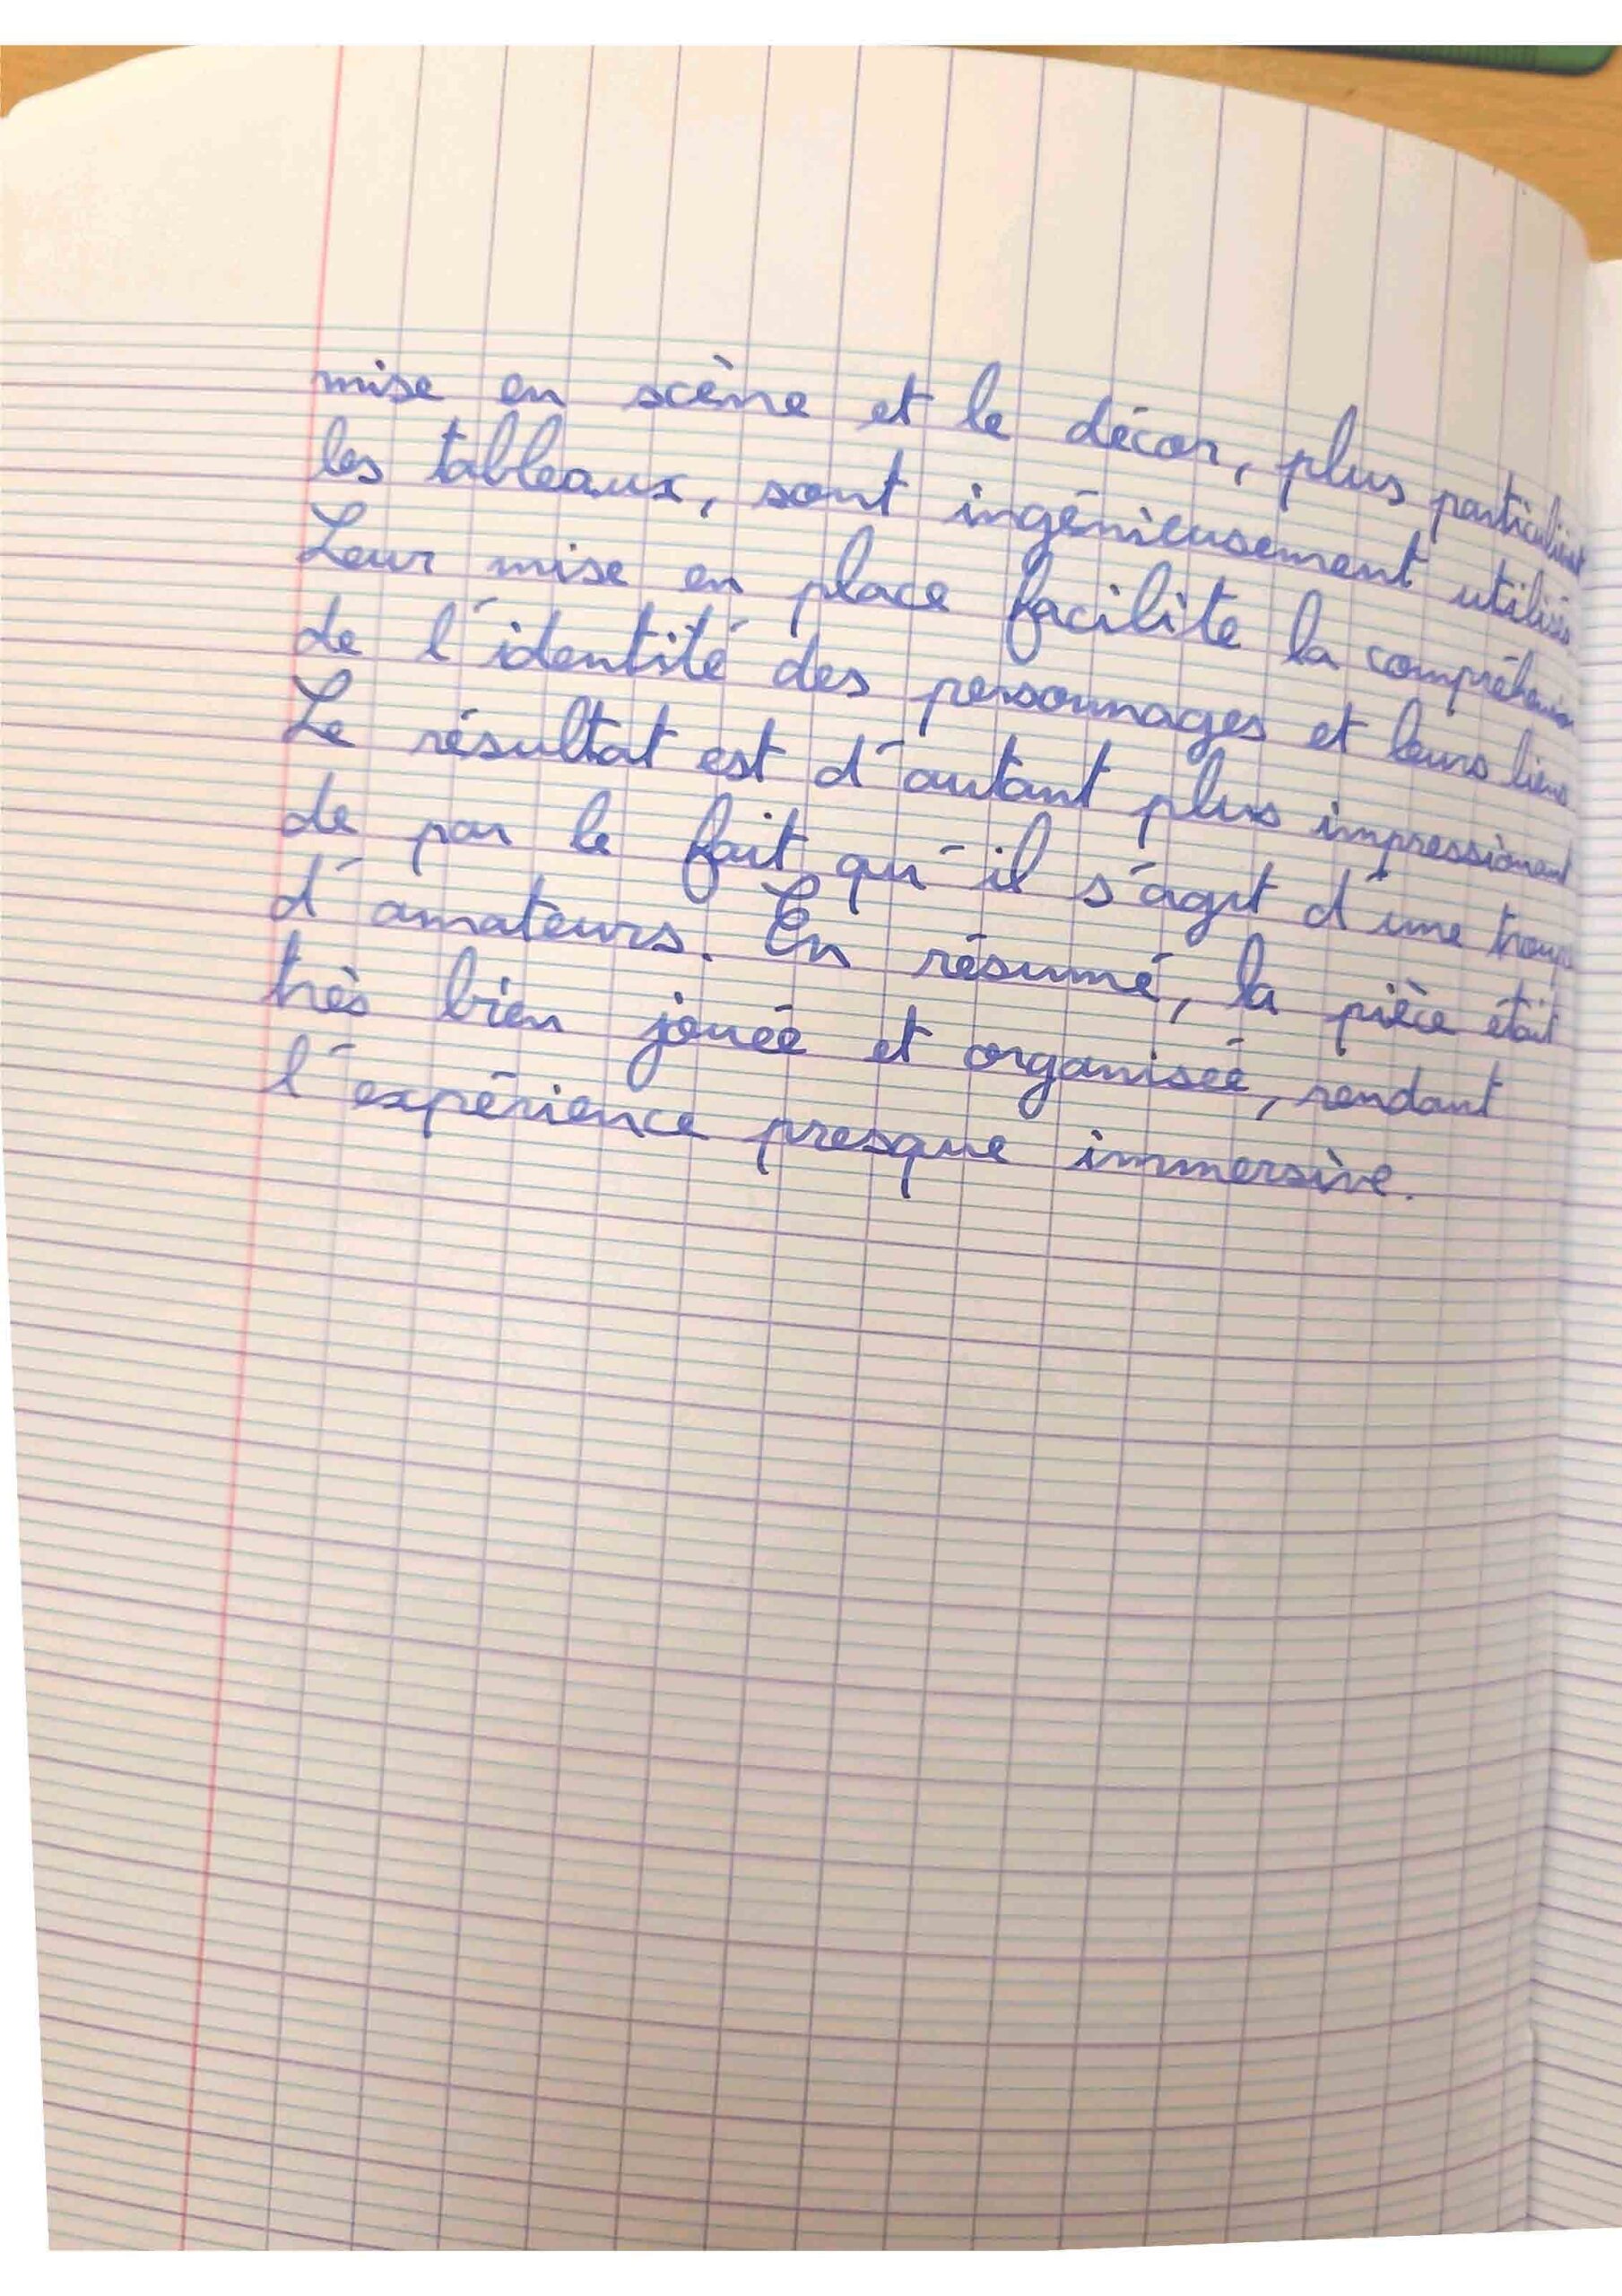 mise en scène et le décor, plus
les tableaux, sont ingénieusement utilisés
Leur mise en place facilite la compréhension
de l'identité des personnages et leurs liens
Le résultat est d'autant plus impressionant
de par le fait qu'il s'agit d'une troupe
d'amateurs. En résumé, la pièce était
très bien jouée et organisée, rendant
l'expérience presque immersive.